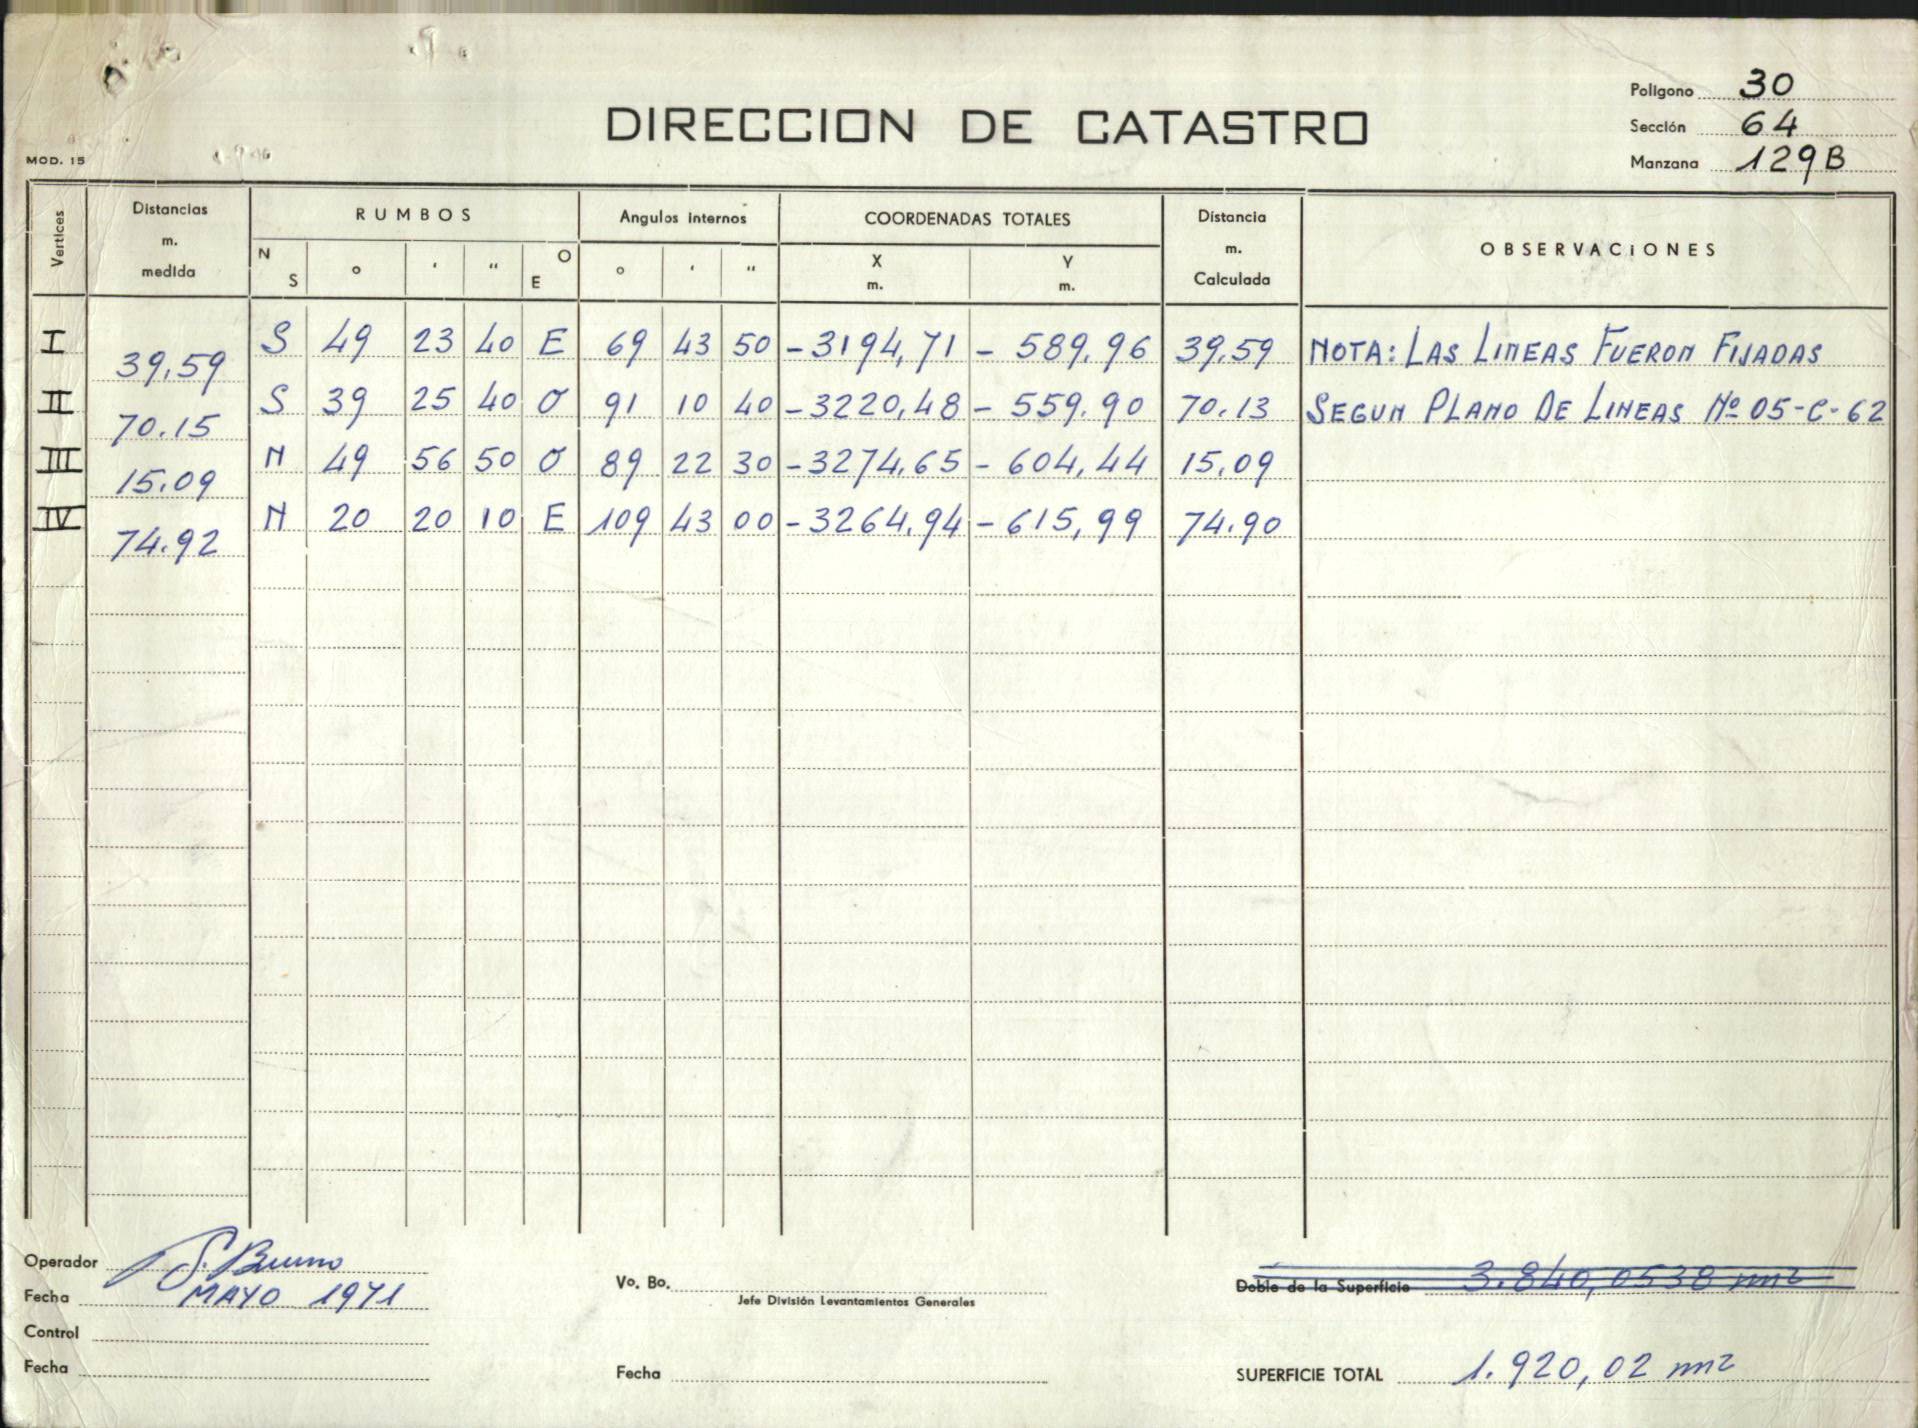 DIRECCION DE CATASTRO
Poligono 30
Sección 64
Manzana 129B
MOD. 15
Vertices Distancias m. medida RUMBOS Angulos internos COORDENADAS TOTALES Distancia m. Calculada OBSERVACiONES
N S ° ' " O E ° ' " X m. Y m.
I 39.59 S 49 23 40 E 69 43 50 -3194,71 - 589.96 39.59 NOTA: LAS LINEAS FUERON FIJADAS
II 70.15 S 39 25 40 O 91 10 40 -3220,48 - 559.90 70.13 SEGUN PLANO DE LINEAS Nº 05-C-62
III 15.09 N 49 56 50 O 89 22 30 -3274.65 - 604,44 15.09
IV 74.92 N 20 20 10 E 109 43 00 -3264,94 - 615,99 74.90
Operador S. Bruno
Fecha MAYO 1971
Control
Fecha
Vo. Bo.
Jefe División Levantamientos Generales
Fecha
Doble de la Superficie 3.840,0538 m²
SUPERFICIE TOTAL 1.920,02 m²